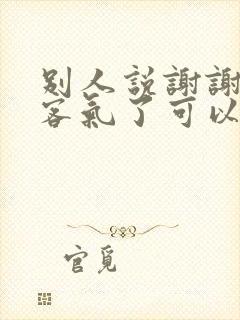 别人說謝謝
客氣了可以
官覓